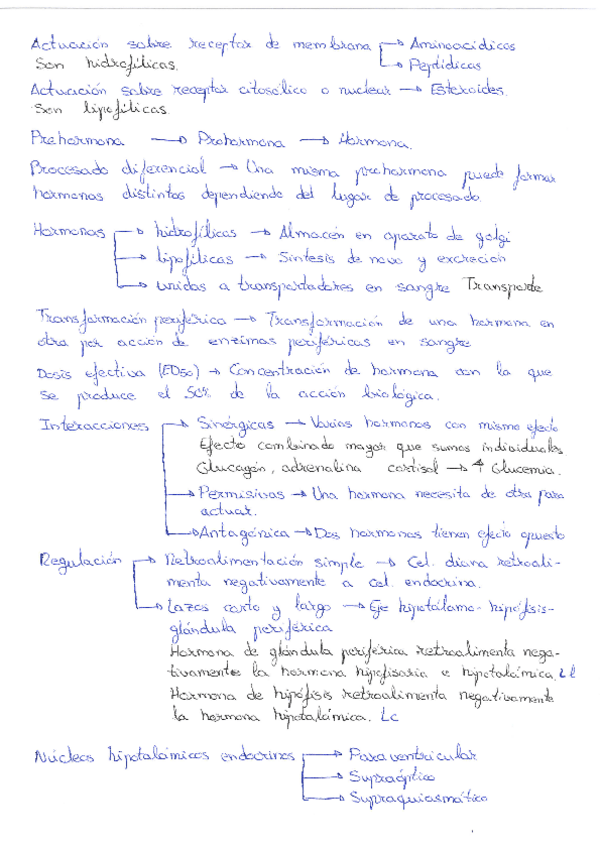 Actuación sobre receptor de membrana → Aminoacídicos
Son hidrofílicas. → Peptídicas
Actuación sobre receptor citosólico o nuclear → Esteroides.
Son lipofílicas.
Prehormona → Prohormona → Hormona.
Procesado diferencial → Una misma prohormona puede formar
hormonas distintas dependiendo del lugar de procesado.
Hormonas → hidrofílicas → Almacén en aparato de golgi
→ lipofílicas → Síntesis de novo y excreción
→ unidas a transportadores en sangre Transporte
Transformación periférica → Transformación de una hormona en
otra por acción de enzimas periféricas en sangre
Dosis efectiva (ED50) → Concentración de hormona con la que
se produce el 50% de la acción biológica.
Interacciones → Sinérgicas → Varias hormonas con mismo efecto
Efecto combinado mayor que sumas individuales
Glucagón, adrenalina cortisol → ↑ Glucemia.
→ Permisivas → Una hormona necesita de otra para
actuar.
→ Antagónica → Dos hormonas tienen efecto opuesto
Regulación → Retroalimentación simple → Cel. diana retroali-
menta negativamente a cel. endocrina.
→ Lazos corto y largo → Eje hipotálamo-hipófisis-
glándula periférica
Hormona de glándula periférica retroalimenta nega-
tivamente la hormona hipofisaria e hipotalámica. Ll
Hormona de hipófisis retroalimenta negativamente
la hormona hipotalámica. Lc
Núcleos hipotalámicos endocrinos → Paraventricular
→ Supraóptico
→ Supraquiasmático